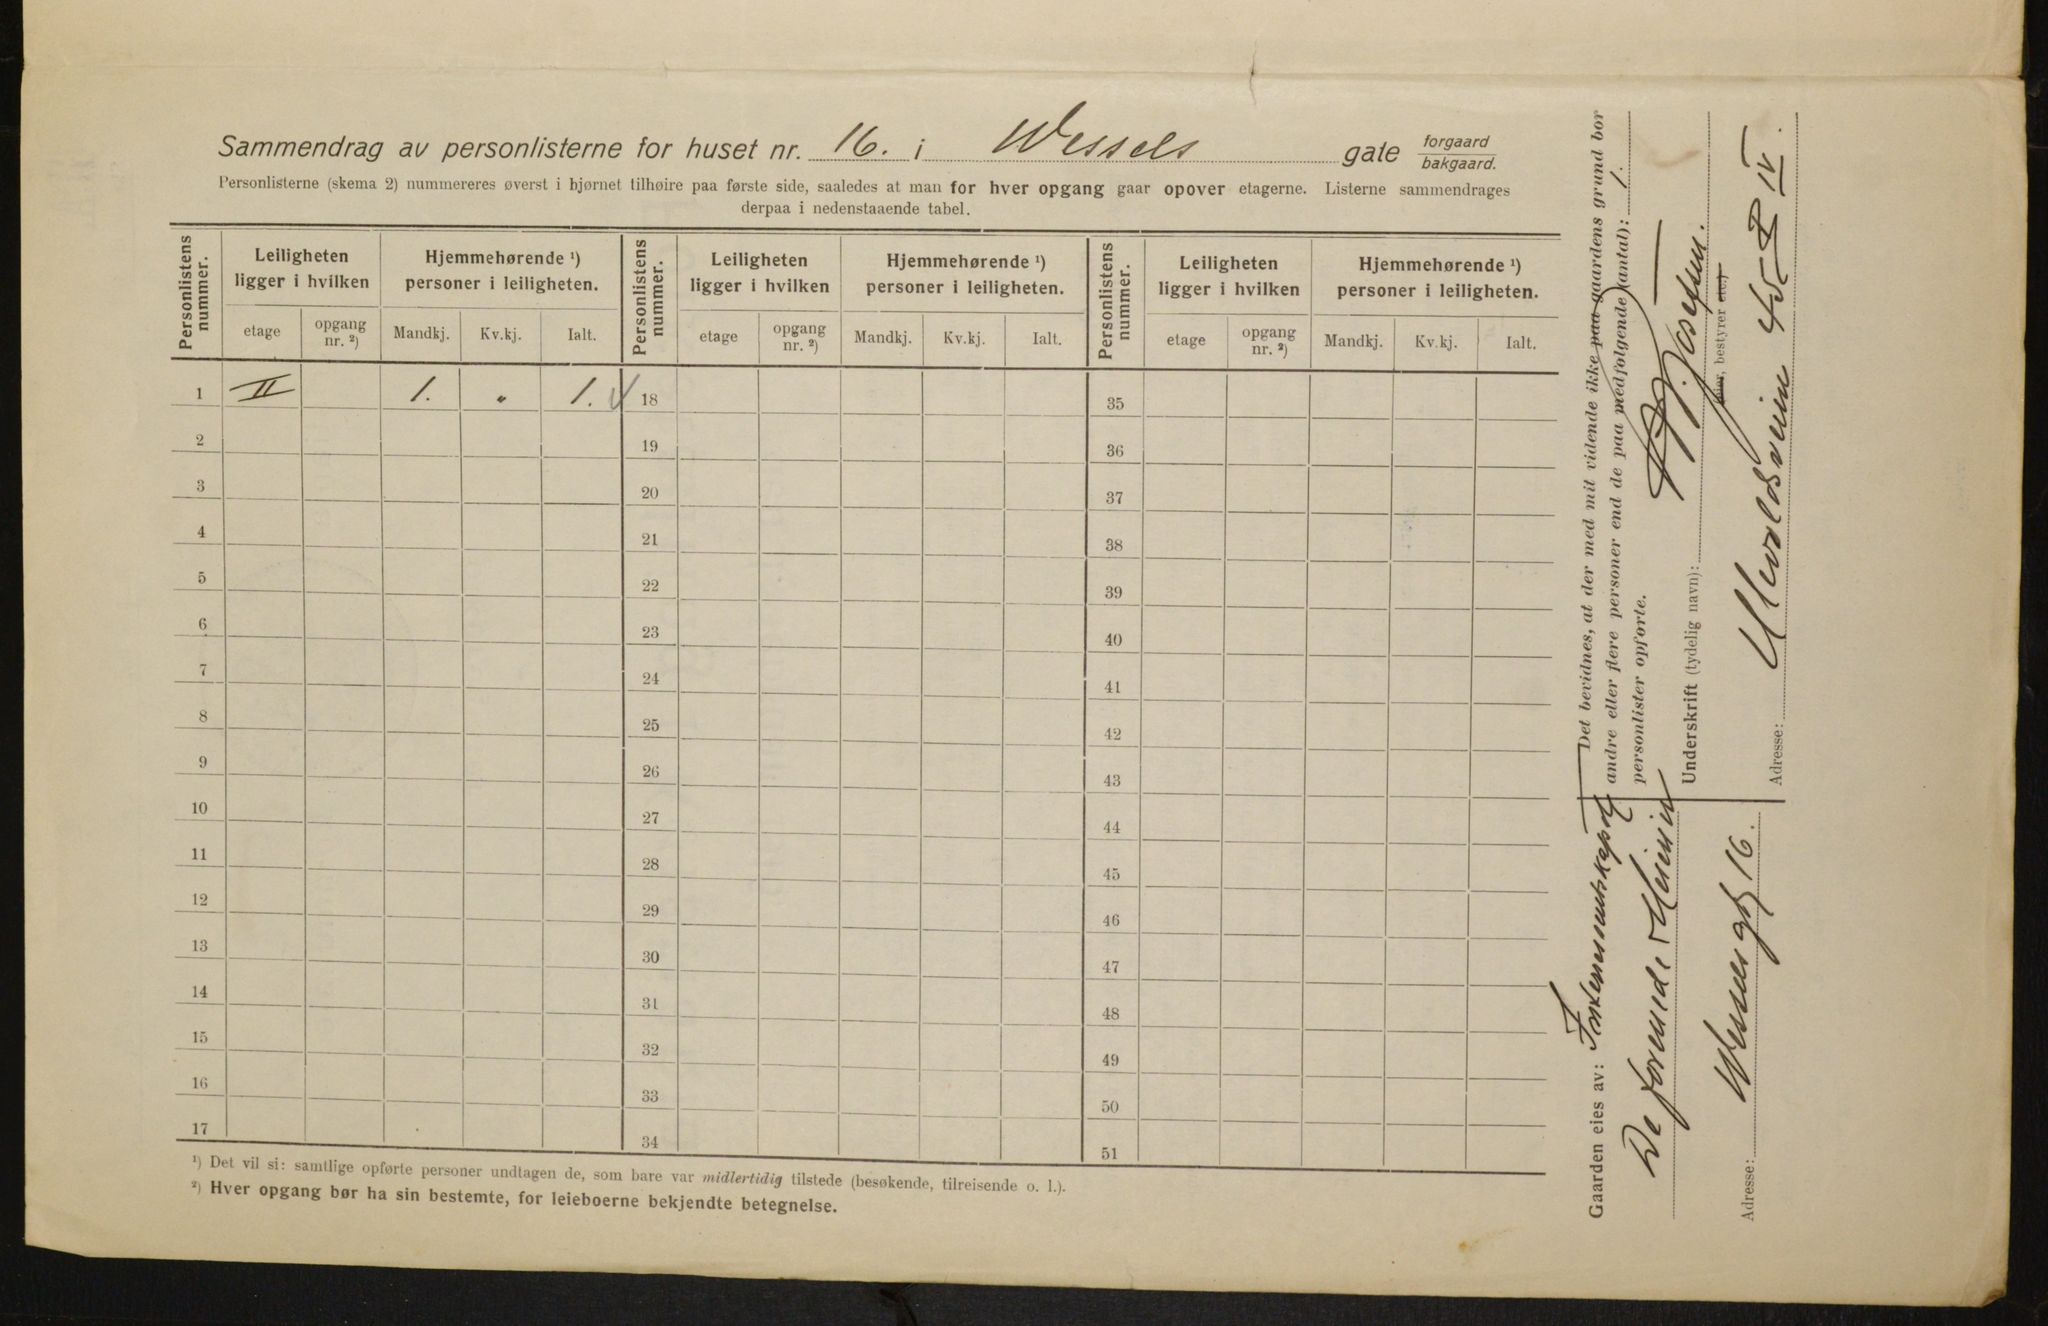 Sammendrag av personlisterne for huset nr. 16. i Wessels gate forgaard bakgaard.
Personlisterne (skema 2) nummereres øverst i hjørnet tilhøire paa første side, saaledes at man for hver opgang gaar opover etagerne. Listerne sammendrages
derpaa i nedenstaaende tabel.
Personlistens nummer. Leiligheten ligger i hvilken Hjemmehørende ¹) personer i leiligheten. Personlistens nummer. Leiligheten ligger i hvilken Hjemmehørende ¹) personer i leiligheten. Personlistens nummer. Leiligheten ligger i hvilken Hjemmehørende ¹) personer i leiligheten.
etage opgang nr. ²) Mandkj. Kv.kj. Ialt. etage opgang nr. ²) Mandkj. Kv.kj. Ialt. etage opgang nr. ²) Mandkj. Kv.kj. Ialt.
1 II 1. „ 1. 18 35
2 19 36
3 20 37
4 21 38
5 22 39
6 23 40
7 24 41
8 25 42
9 26 43
10 27 44
11 28 45
12 29 46
13 30 47
14 31 48
15 32 49
16 33 50
17 34 51
¹) Det vil si: samtlige opførte personer undtagen de, som bare var midlertidig tilstede (besøkende, tilreisende o. l.).
²) Hver opgang bør ha sin bestemte, for leieboerne bekjendte betegnelse.
Det bevidnes, at der med mit vidende ikke paa gaardens grund bor
andre eller flere personer end de paa medfølgende (antal): 1.
personlister opførte.
Underskrift (tydelig navn):
Eier, bestyrer etc.)
Adresse: 45 IV.
Gaarden eies av:
De forenede
Adresse: Wesselsgt 16.